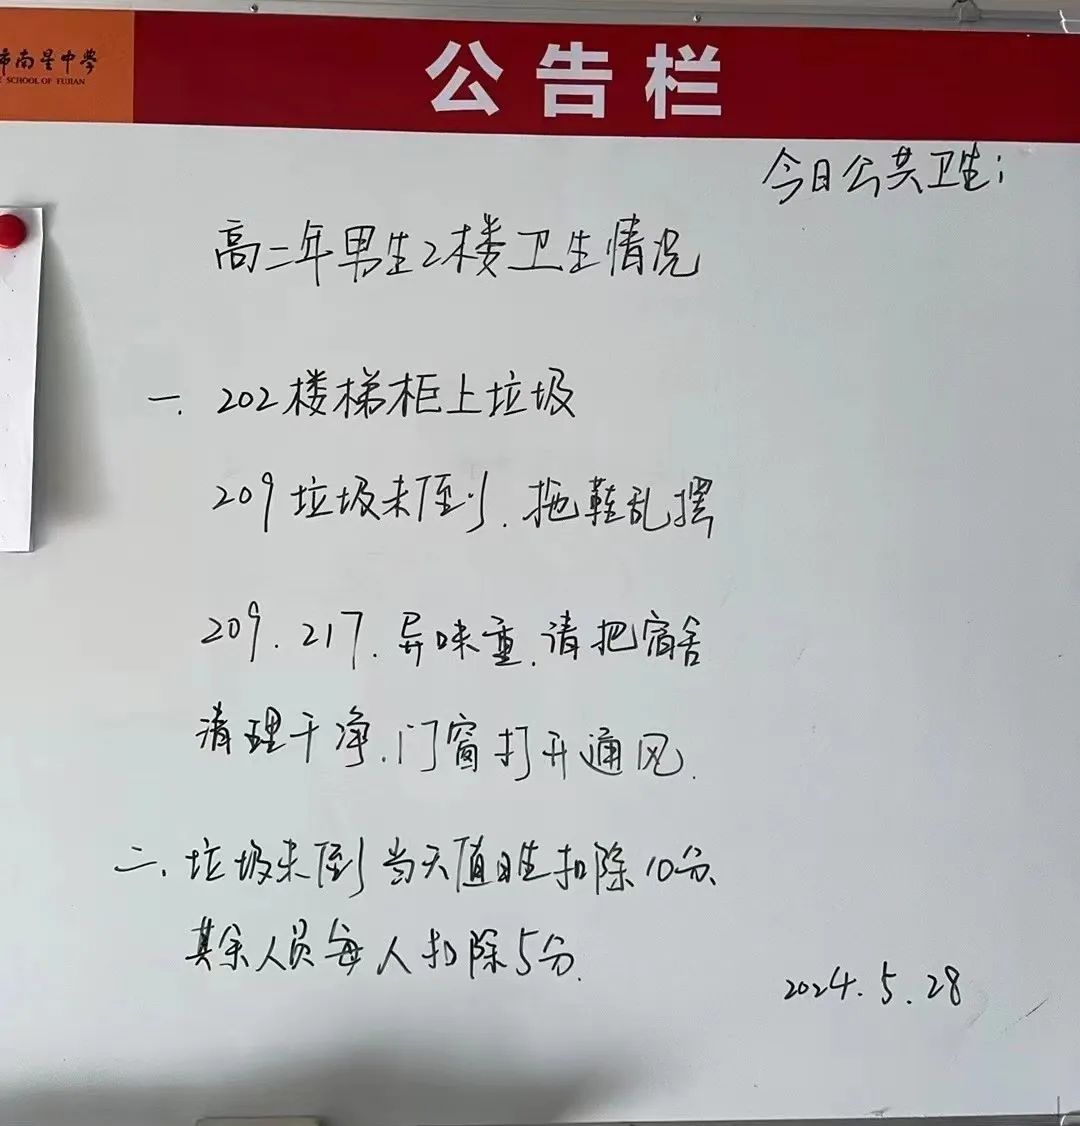 市南星中学
SCHOOL OF FUJIAN
公告栏
今日公共卫生:
高二年男生2楼卫生情况
一. 202楼梯柜上垃圾
209垃圾未倒, 拖鞋乱摆
209. 217. 异味重, 请把宿舍
清理干净, 门窗打开通风.
二、垃圾未倒当天值日生扣除10分、
其余人员每人扣除5分.
2024.5.28